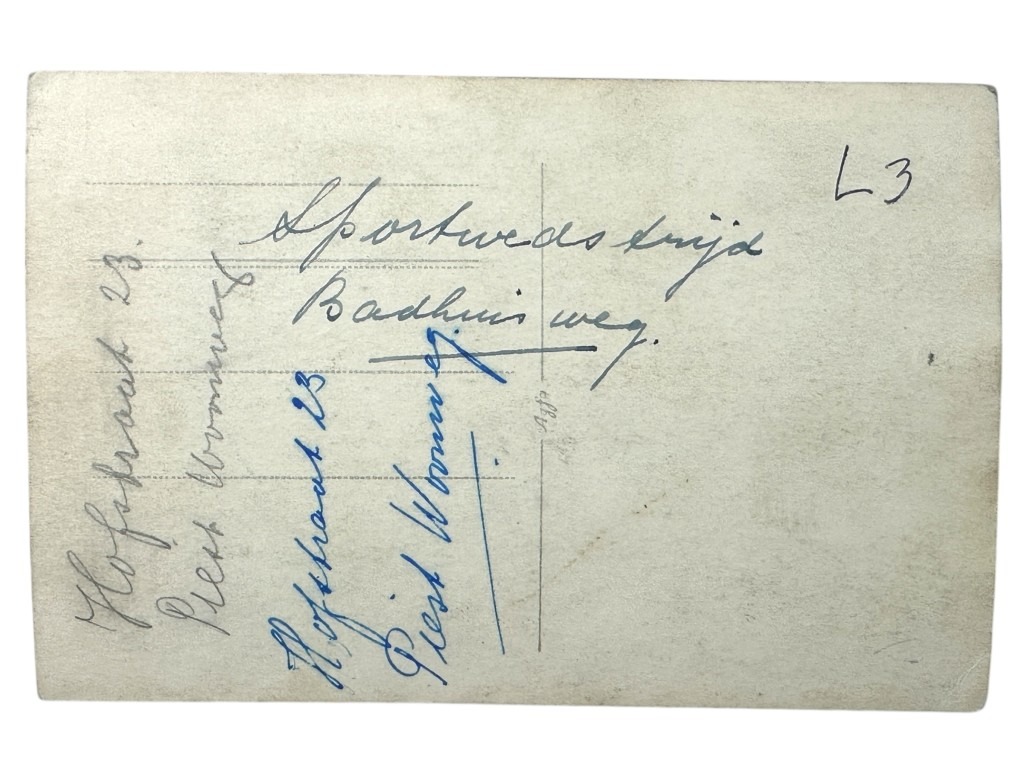 L 3
Sportwedstrijd
Badhuisweg.
Hofstraat 23.
Piest Woonweg
Hofstraat 23
Piest Woonweg.